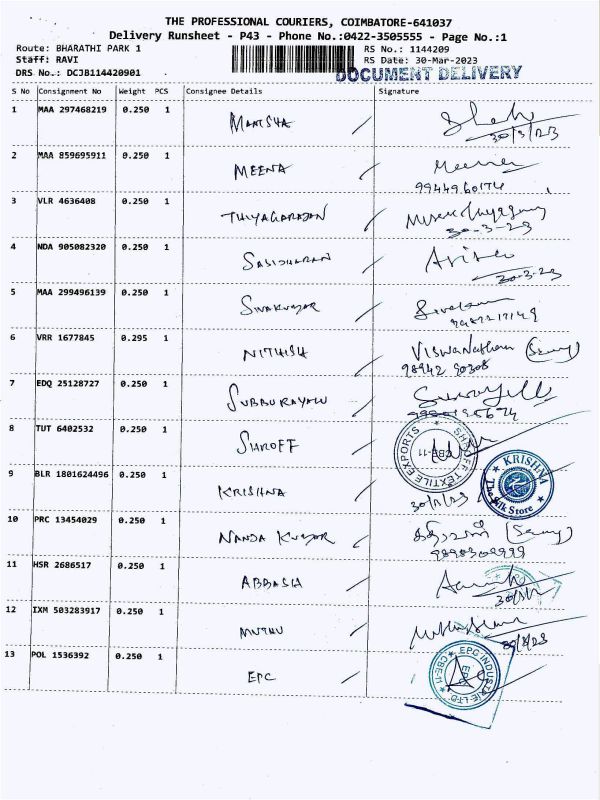 THE PROFESSIONAL COURIERS, COIMBATORE-641037
Delivery Runsheet - P43 - Phone No.:0422-3505555 - Page No.:1
Route: BHARATHI PARK 1 RS No.: 1144209
Staff: RAVI RS Date: 30-Mar-2023
DRS No.: DCJB114420901 DOCUMENT DELIVERY
S No Consignment No Weight PCS Consignee Details Signature
1 MAA 297468219 0.250 1
30/3/23
2 MAA 859695911 0.250 1 MEENA Meena
3 VLR 4636408 0.250 1 THIYAGARAJAN
30-3-23
4 NDA 905082320 0.250 1 SASIDHARAN
30-3-23
5 MAA 299496139 0.250 1 SIVAKUMAR
6 VRR 1677845 0.295 1 NITHISH Viswanathan
98942 90308
7 EDQ 25128727 0.250 1 SUBBURAYALU
8 TUT 6402532 0.250 1 SHROFF
SHROFF TEXTILE EXPORTS CBE-11
9 BLR 1801624496 0.250 1 KRISHNA
KRISHNA The Silk Store
10 PRC 13454029 0.250 1 NANDA KUMAR
11 HSR 2686517 0.250 1
12 IXM 503283917 0.250 1 MUTHU
13 POL 1536392 0.250 1 EPC
EPC INDUSTRIE LTD CBE-11